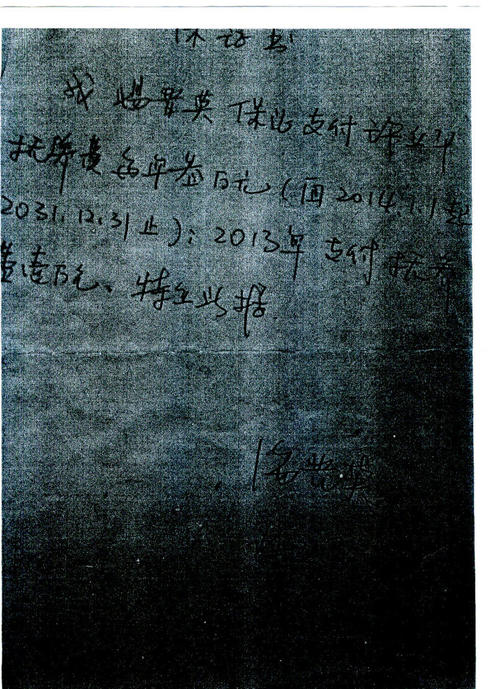 保证书
我 保证支付
抚养费每年叁万元(自2014.1.1起
2031.12.31止);2013年支付抚养
费壹万元、特立此据